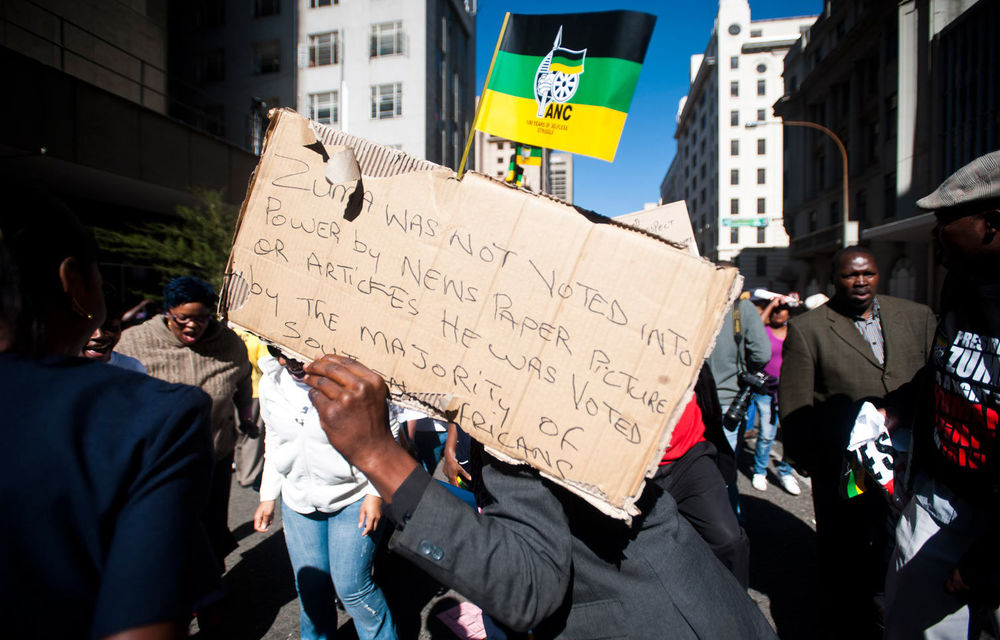 ANC
100 YEARS OF SELFLESS
STRUGGLE
ZUMA WAS NOT VOTED INTO
POWER by NEWS PAPER PICTURE
OR ARTICLES HE WAS VOTED
by THE MAJORITY OF
AFRICANS
ZUM